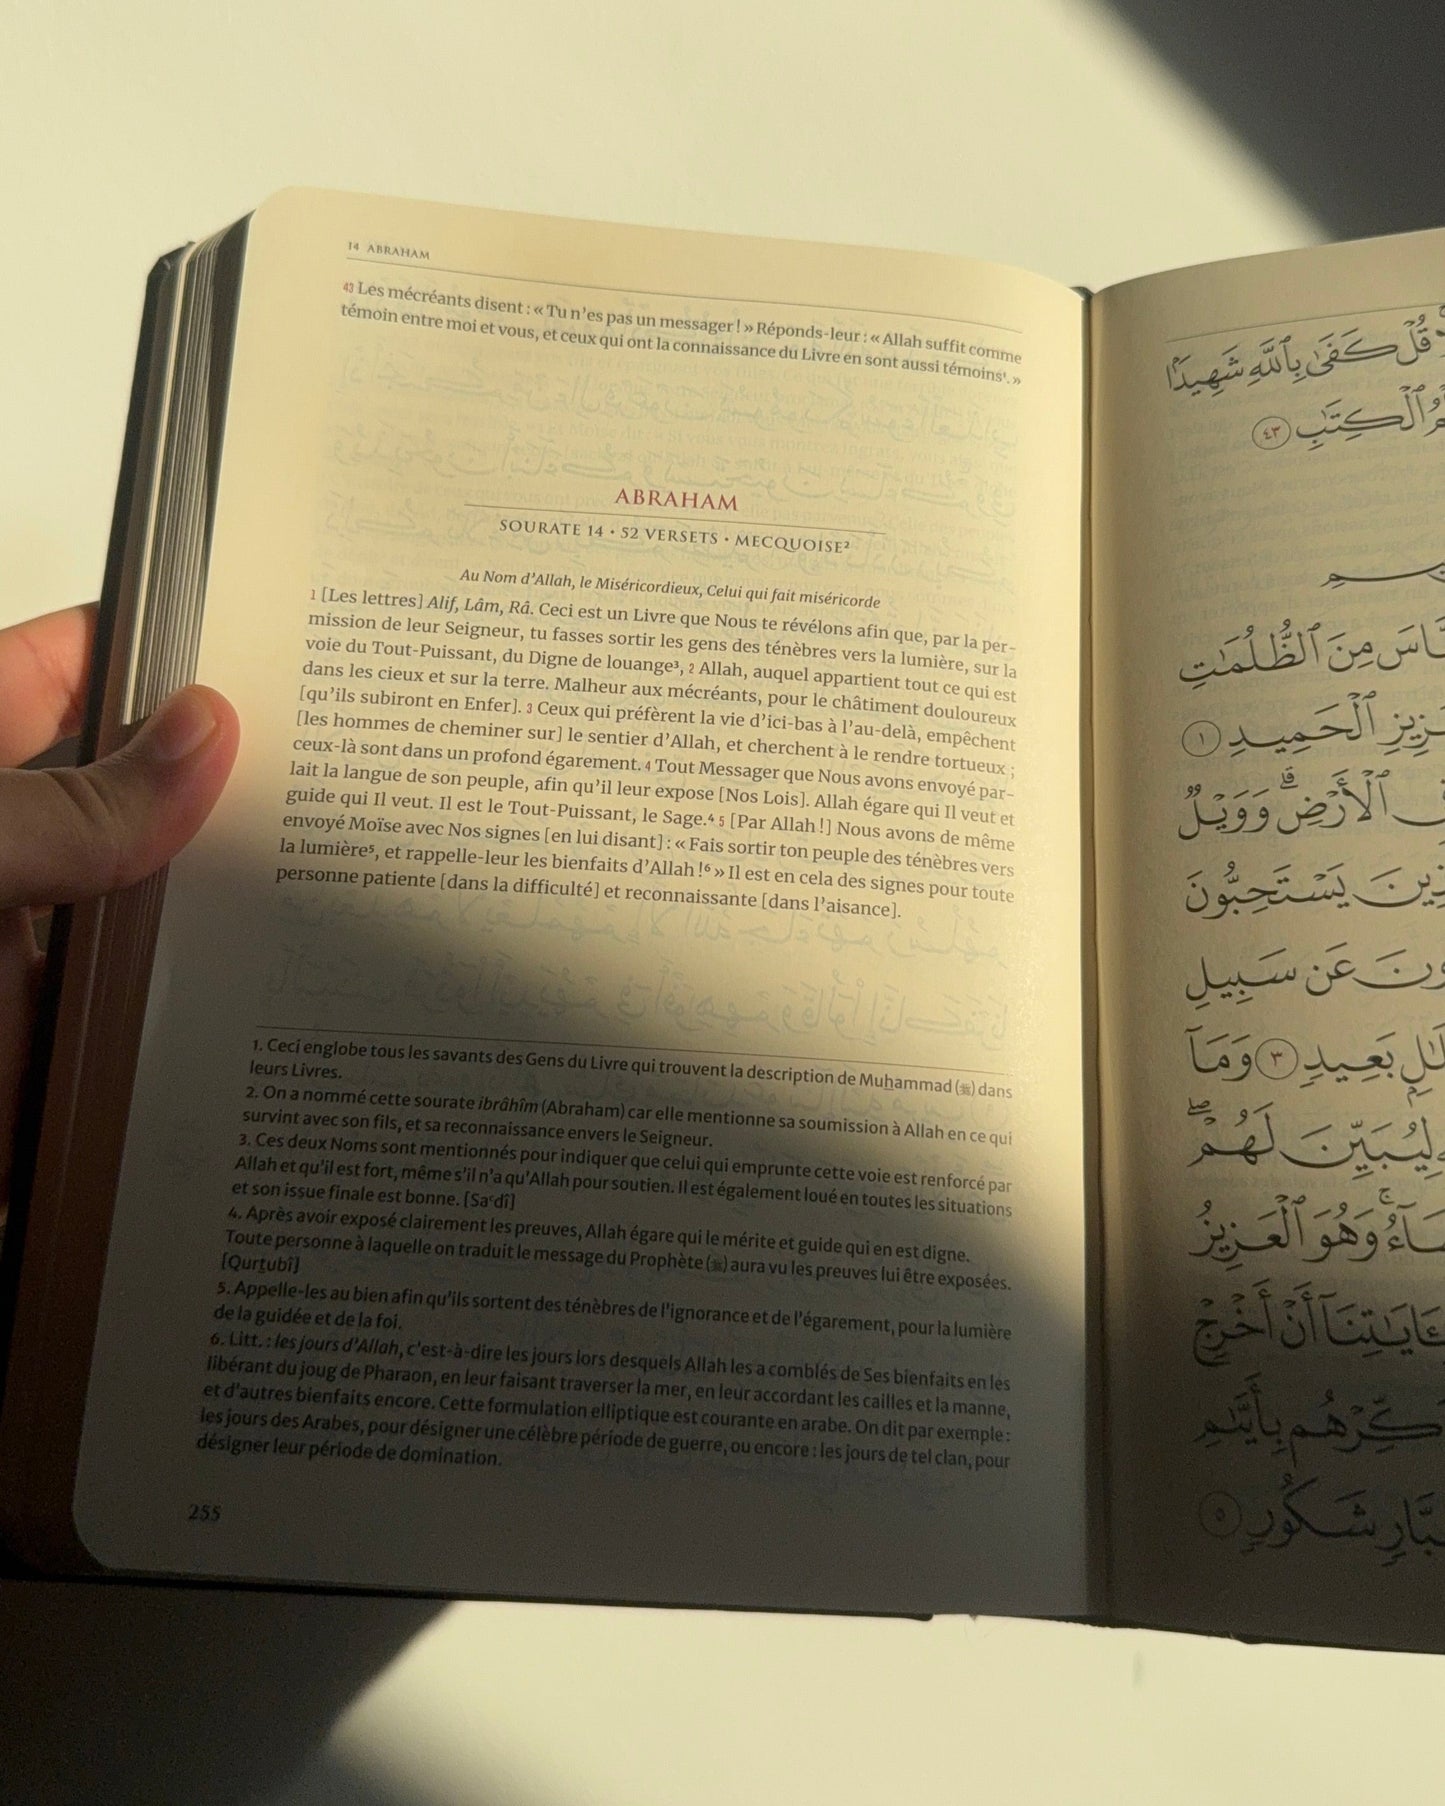 14 ABRAHAM
43 Les mécréants disent : « Tu n'es pas un messager ! » Réponds-leur : « Allah suffit comme
témoin entre moi et vous, et ceux qui ont la connaissance du Livre en sont aussi témoins¹. »
ABRAHAM
SOURATE 14 • 52 VERSETS • MECQUOISE²
Au Nom d'Allah, le Miséricordieux, Celui qui fait miséricorde
1 [Les lettres] Alif, Lâm, Râ. Ceci est un Livre que Nous te révélons afin que, par la per-
mission de leur Seigneur, tu fasses sortir les gens des ténèbres vers la lumière, sur la
voie du Tout-Puissant, du Digne de louange³, 2 Allah, auquel appartient tout ce qui est
dans les cieux et sur la terre. Malheur aux mécréants, pour le châtiment douloureux
[qu'ils subiront en Enfer]. 3 Ceux qui préfèrent la vie d'ici-bas à l'au-delà, empêchent
[les hommes de cheminer sur] le sentier d'Allah, et cherchent à le rendre tortueux ;
ceux-là sont dans un profond égarement. 4 Tout Messager que Nous avons envoyé par-
lait la langue de son peuple, afin qu'il leur expose [Nos Lois]. Allah égare qui Il veut et
guide qui Il veut. Il est le Tout-Puissant, le Sage.⁴ 5 [Par Allah !] Nous avons de même
envoyé Moïse avec Nos signes [en lui disant] : « Fais sortir ton peuple des ténèbres vers
la lumière⁵, et rappelle-leur les bienfaits d'Allah !⁶ » Il est en cela des signes pour toute
personne patiente [dans la difficulté] et reconnaissante [dans l'aisance].
1. Ceci englobe tous les savants des Gens du Livre qui trouvent la description de Muhammad (ﷺ) dans
leurs Livres.
2. On a nommé cette sourate ibrâhîm (Abraham) car elle mentionne sa soumission à Allah en ce qui
survint avec son fils, et sa reconnaissance envers le Seigneur.
3. Ces deux Noms sont mentionnés pour indiquer que celui qui emprunte cette voie est renforcé par
Allah et qu'il est fort, même s'il n'a qu'Allah pour soutien. Il est également loué en toutes les situations
et son issue finale est bonne. [Saᶜdî]
4. Après avoir exposé clairement les preuves, Allah égare qui le mérite et guide qui en est digne.
Toute personne à laquelle on traduit le message du Prophète (ﷺ) aura vu les preuves lui être exposées.
[Qurtubî]
5. Appelle-les au bien afin qu'ils sortent des ténèbres de l'ignorance et de l'égarement, pour la lumière
de la guidée et de la foi.
6. Litt. : les jours d'Allah, c'est-à-dire les jours lors desquels Allah les a comblés de Ses bienfaits en les
libérant du joug de Pharaon, en leur faisant traverser la mer, en leur accordant les cailles et la manne,
et d'autres bienfaits encore. Cette formulation elliptique est courante en arabe. On dit par exemple :
les jours des Arabes, pour désigner une célèbre période de guerre, ou encore : les jours de tel clan, pour
désigner leur période de domination.
255
قُلْ كَفَىٰ بِٱللَّهِ شَهِيدًۢا
ٱلْكِتَٰبِ ٤٣
مِنَ ٱلظُّلُمَٰتِ
ٱلْحَمِيدِ ١
ٱلْأَرْضِ ۗ وَوَيْلٌ
يَسْتَحِبُّونَ
عَن سَبِيلِ
بَعِيدٍ ٣ وَمَآ
لِيُبَيِّنَ لَهُمْ ۖ
وَهُوَ ٱلْعَزِيزُ
أَنْ أَخْرِجْ
بِأَيَّىٰمِ
شَكُورٍ ٥